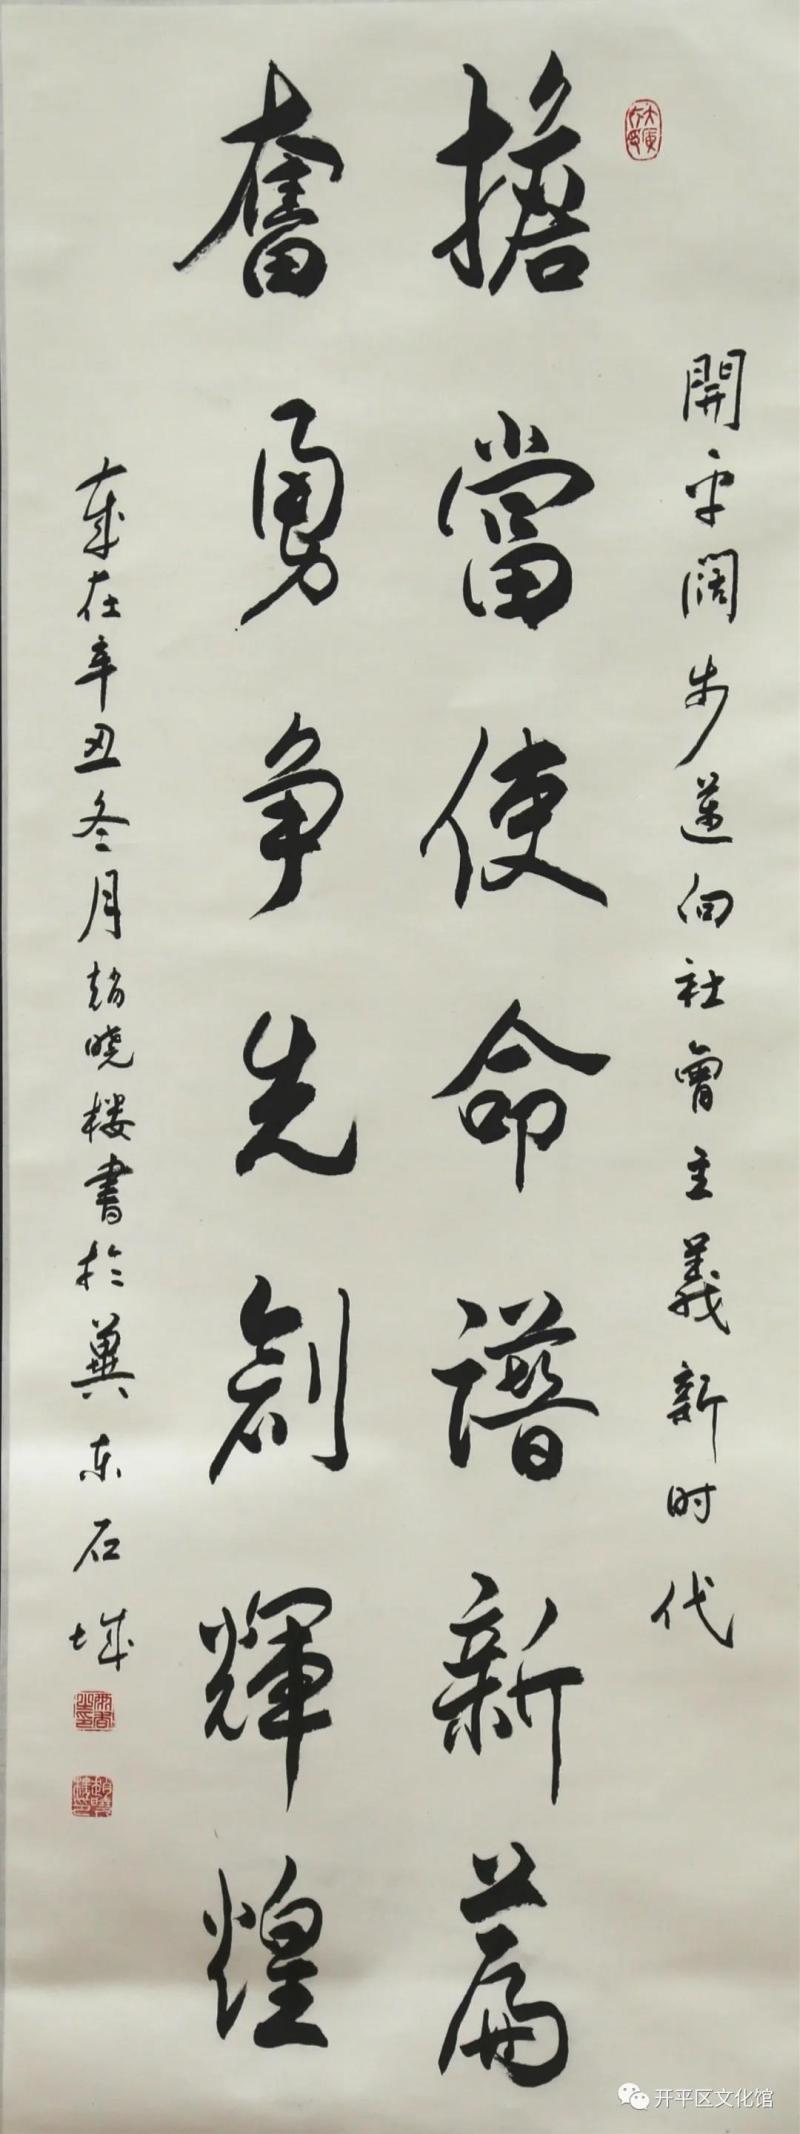 開平阔步邁向社會主義新时代
擔當使命譜新篇
奮勇争先創輝煌
歲在辛丑冬月趙晓楼書於冀东石城
开平区文化馆